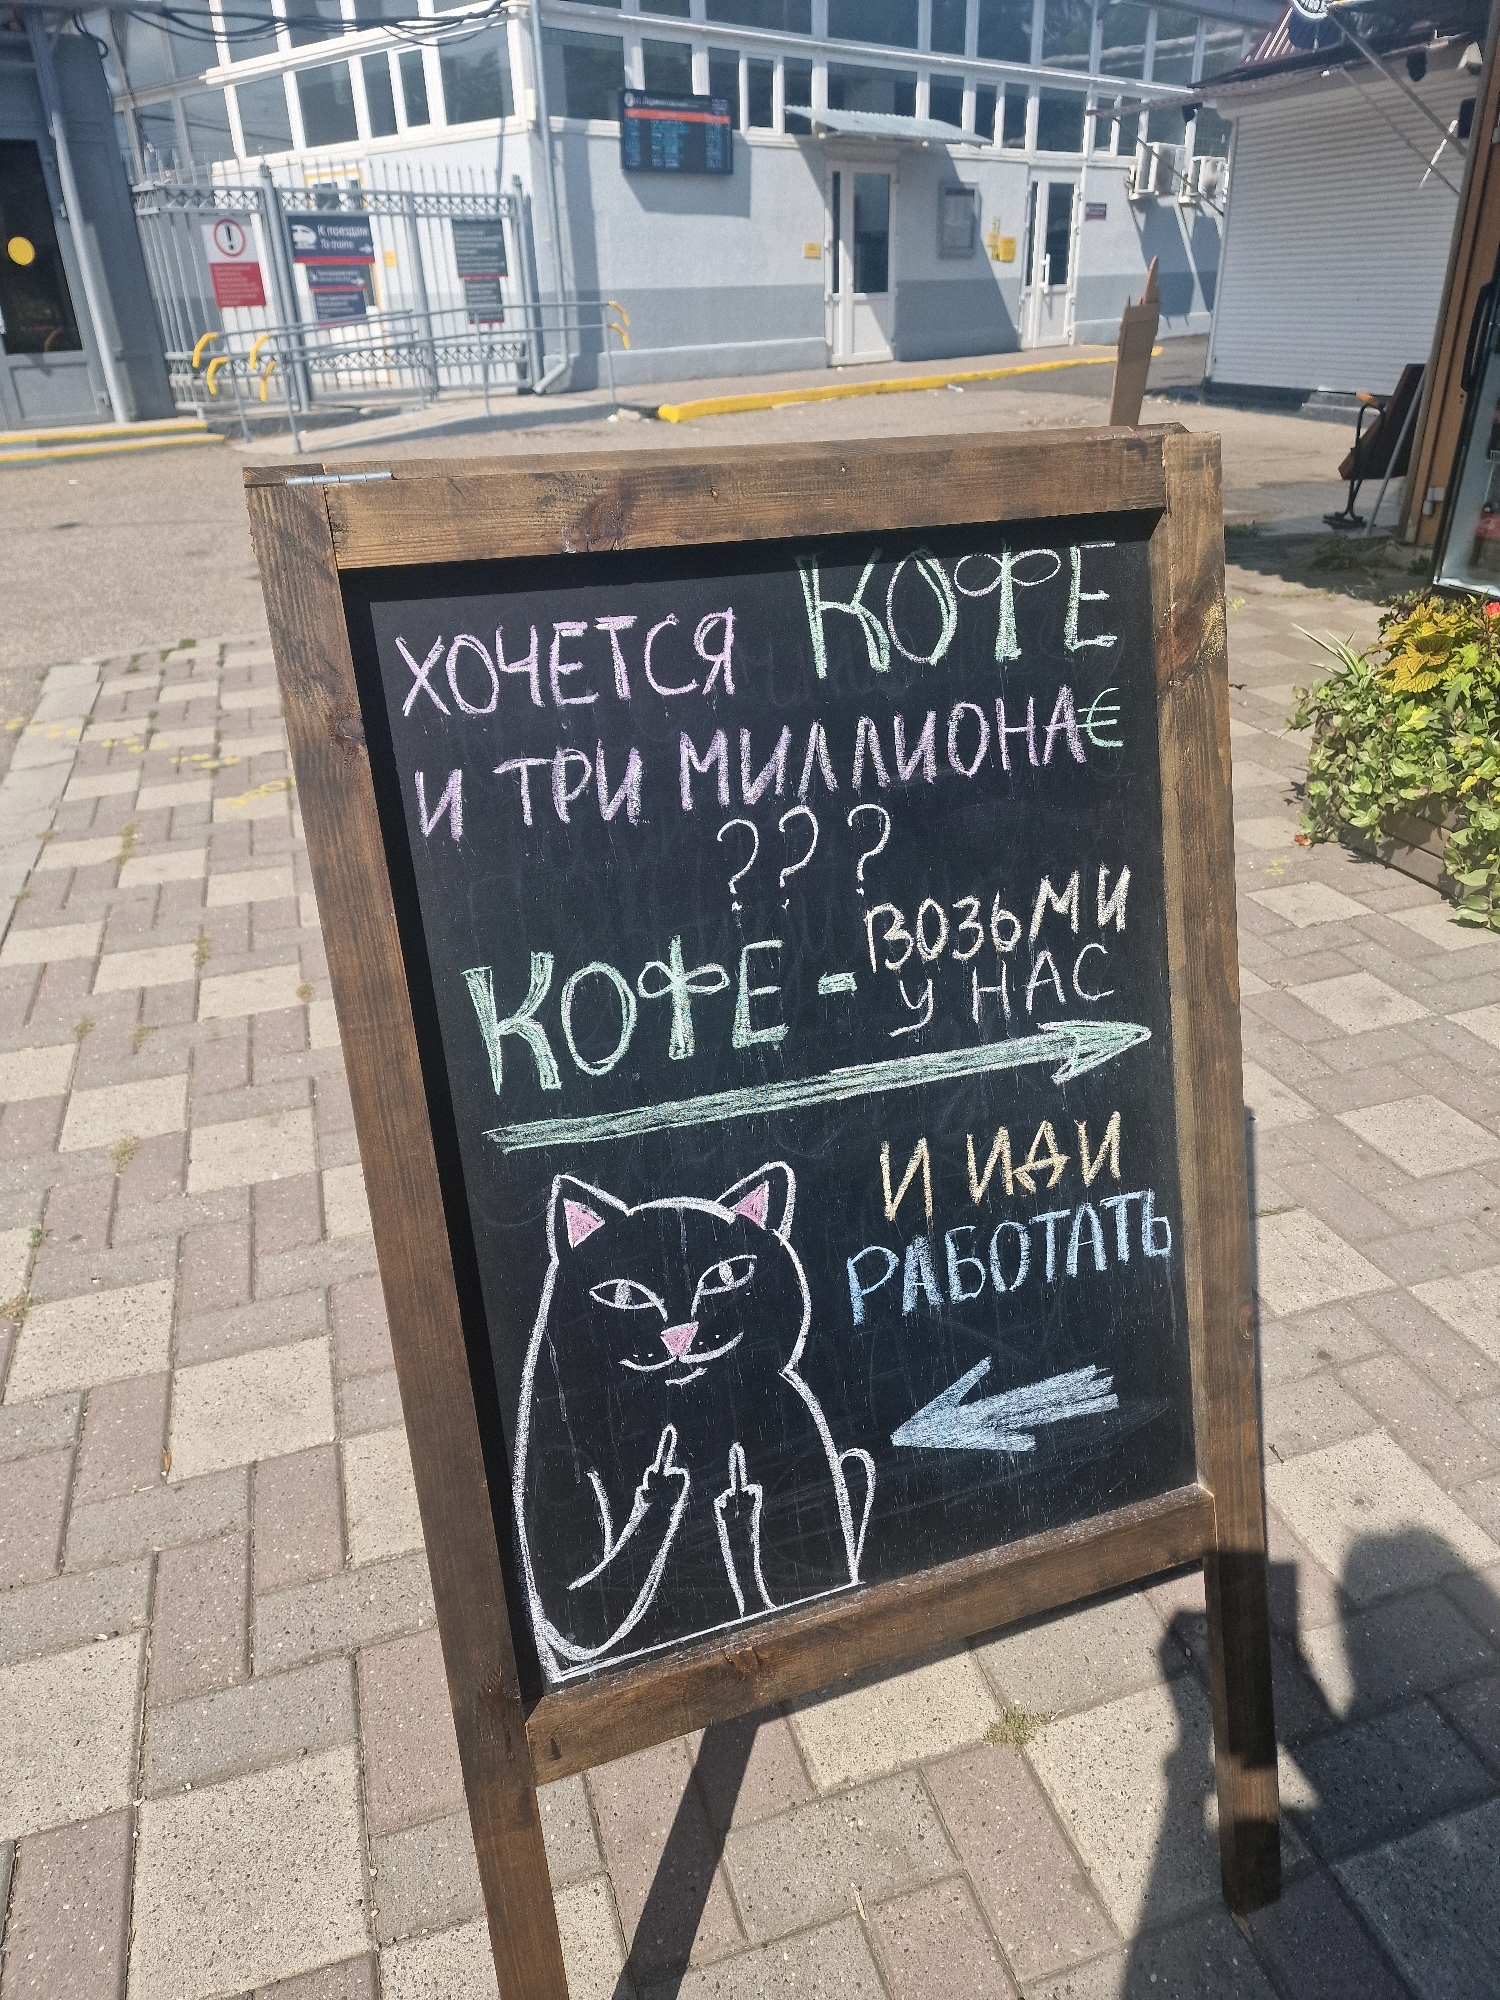 К поездам
To trains
ХОЧЕТСЯ КОФЕ
И ТРИ МИЛЛИОНА€
???
КОФЕ - ВОЗЬМИ
У НАС
И ИДИ
РАБОТАТЬ